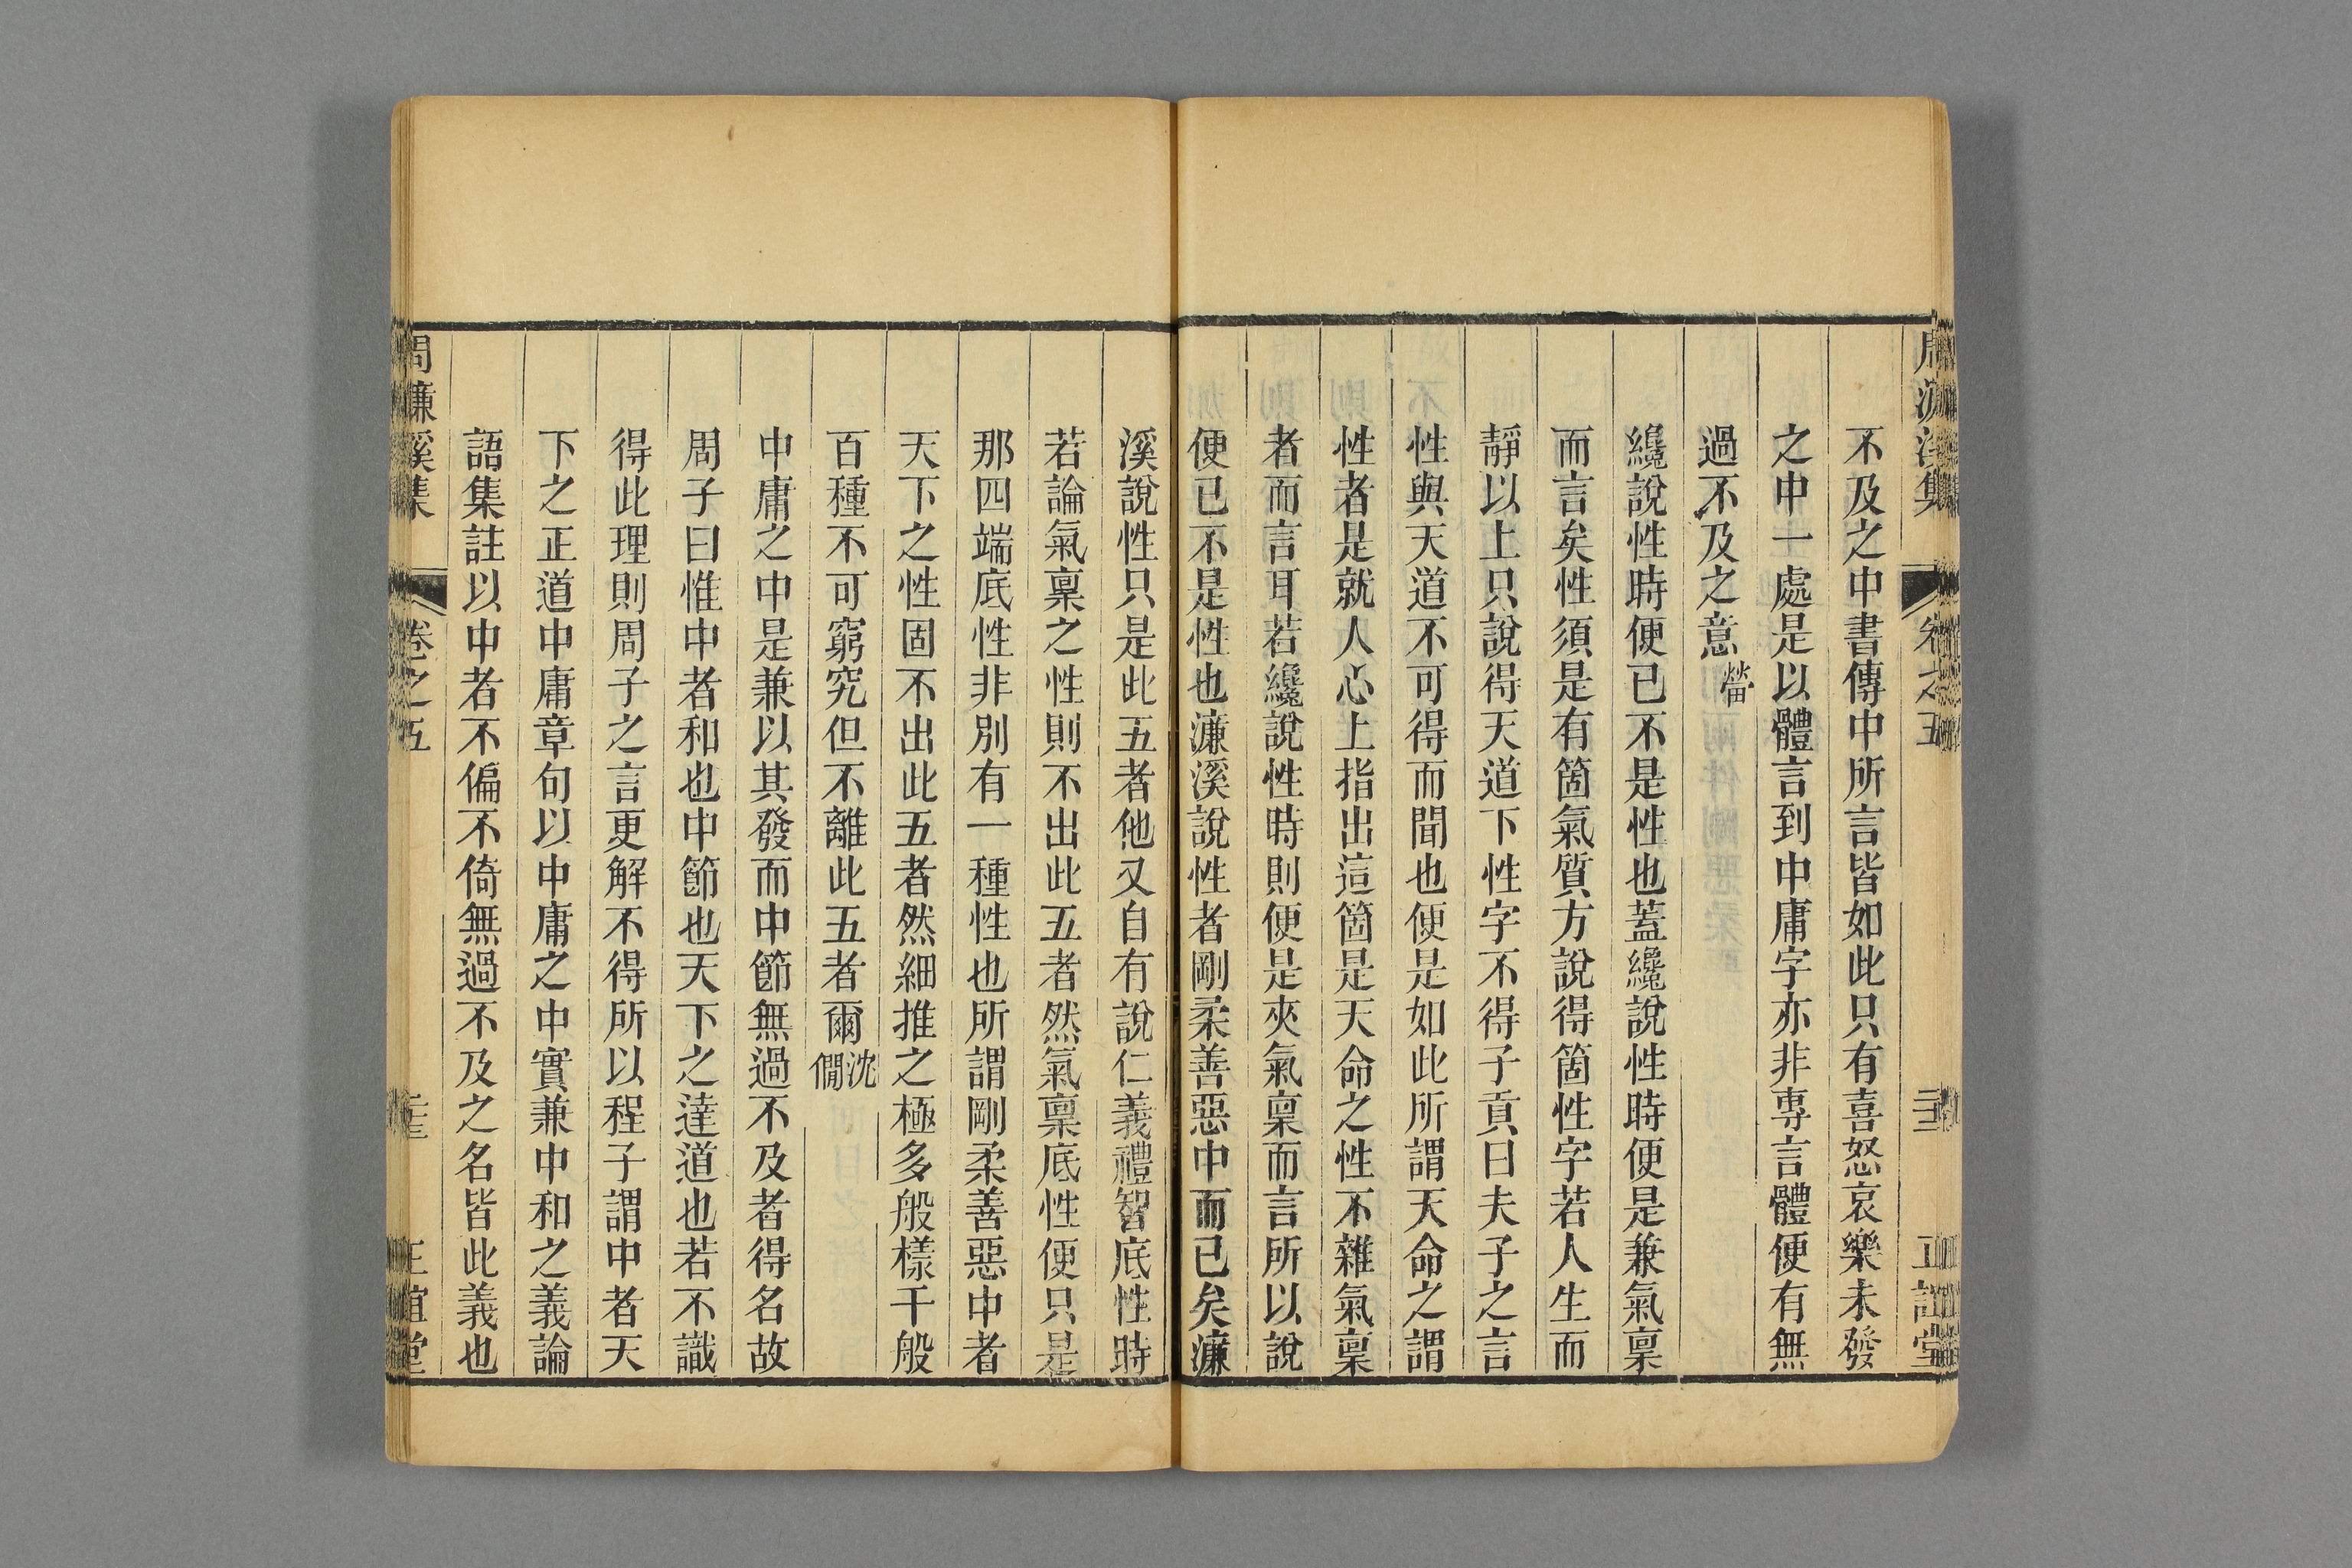 周濂溪集 卷之五 正誼堂
不及之中書傳中所言皆如此只有喜怒哀樂未發
之中一處是以體言到中庸字亦非專言體便有無
過不及之意㽦
纔說性時便已不是性也蓋纔說性時便是兼氣稟
而言矣性須是有箇氣質方說得箇性字若人生而
靜以上只說得天道下性字不得子貢曰夫子之言
性與天道不可得而聞也便是如此所謂天命之謂
性者是就人心上指出這箇是天命之性不雜氣稟
者而言耳若纔說性時則便是夾氣稟而言所以說
便已不是性也濂溪說性者剛柔善惡中而已矣濂
溪說性只是此五者他又自有說仁義禮智底性時
若論氣稟之性則不出此五者然氣稟底性便只是
那四端底性非別有一種性也所謂剛柔善惡中者
天下之性固不出此五者然細推之極多般樣千般
百種不可窮究但不離此五者爾沈僩
中庸之中是兼以其發而中節無過不及者得名故
周子曰惟中者和也中節也天下之達道也若不識
得此理則周子之言更解不得所以程子謂中者天
下之正道中庸章句以中庸之中實兼中和之義論
語集註以中者不偏不倚無過不及之名皆此義也
周濂溪集 卷之五 正誼堂